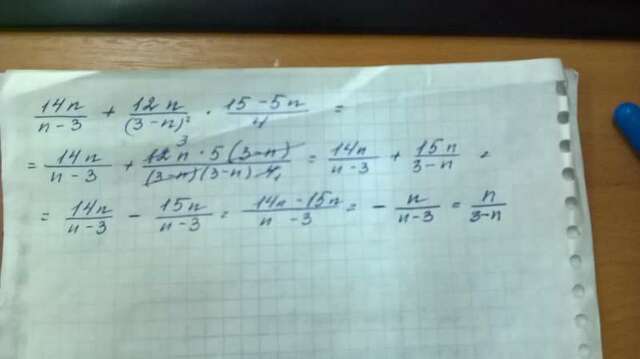 14n/(n-3) + 12n/(3-n)² · (15-5n)/4 =
= 14n/(n-3) + (12n · 5(3-n))/((3-n)(3-n)4) = 14n/(n-3) + 15n/(3-n) =
3
= 14n/(n-3) - 15n/(n-3) = (14n-15n)/(n-3) = - n/(n-3) = n/(3-n)